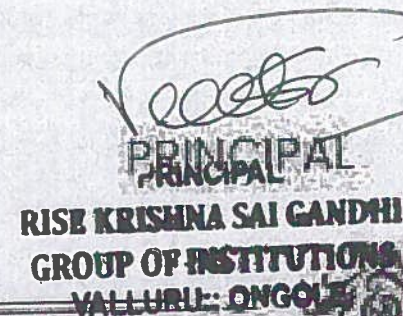 PRINCIPAL
PRINCIPAL
RISE KRISHNA SAI GANDHI
GROUP OF INSTITUTIONS
VALLURU:: ONGOLE